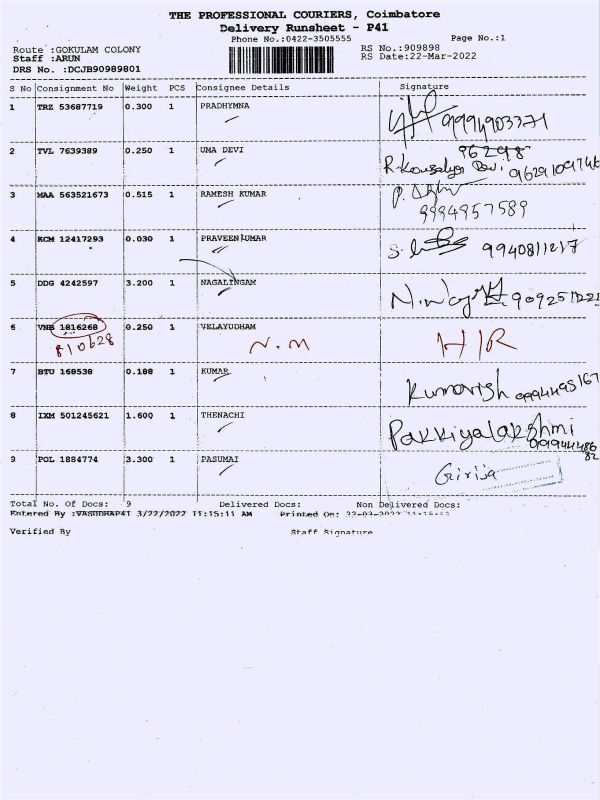 THE PROFESSIONAL COURIERS, Coimbatore
Delivery Runsheet - P41
Phone No.:0422-3505555 Page No.:1
Route :GOKULAM COLONY RS No.:909898
Staff :ARUN RS Date:22-Mar-2022
DRS No. :DCJB90989801
S No Consignment No Weight PCS Consignee Details Signature
1 TRZ 53687719 0.300 1 PRADHYMNA 9994903371
2 TVL 7639389 0.250 1 UMA DEVI 96298
R. Kousalya Devi
3 MAA 563521673 0.515 1 RAMESH KUMAR
9994957589
4 KCM 12417293 0.030 1 PRAVEENKUMAR 9940811217
5 DDG 4242597 3.200 1 NAGALINGAM
6 VNB 1816268 0.250 1 VELAYUDHAM
810628 N.M H/R
7 BTU 168538 0.188 1 KUMAR
8 IXM 501245621 1.600 1 THENACHI Pakkiyalakshmi
9 POL 1884774 3.300 1 PASUMAI Girija
Total No. Of Docs: 9 Delivered Docs: Non Delivered Docs:
Entered By :VASUDHAP41 3/22/2022 11:15:11 AM Printed On: 22-03-2022
Verified By Staff Signature